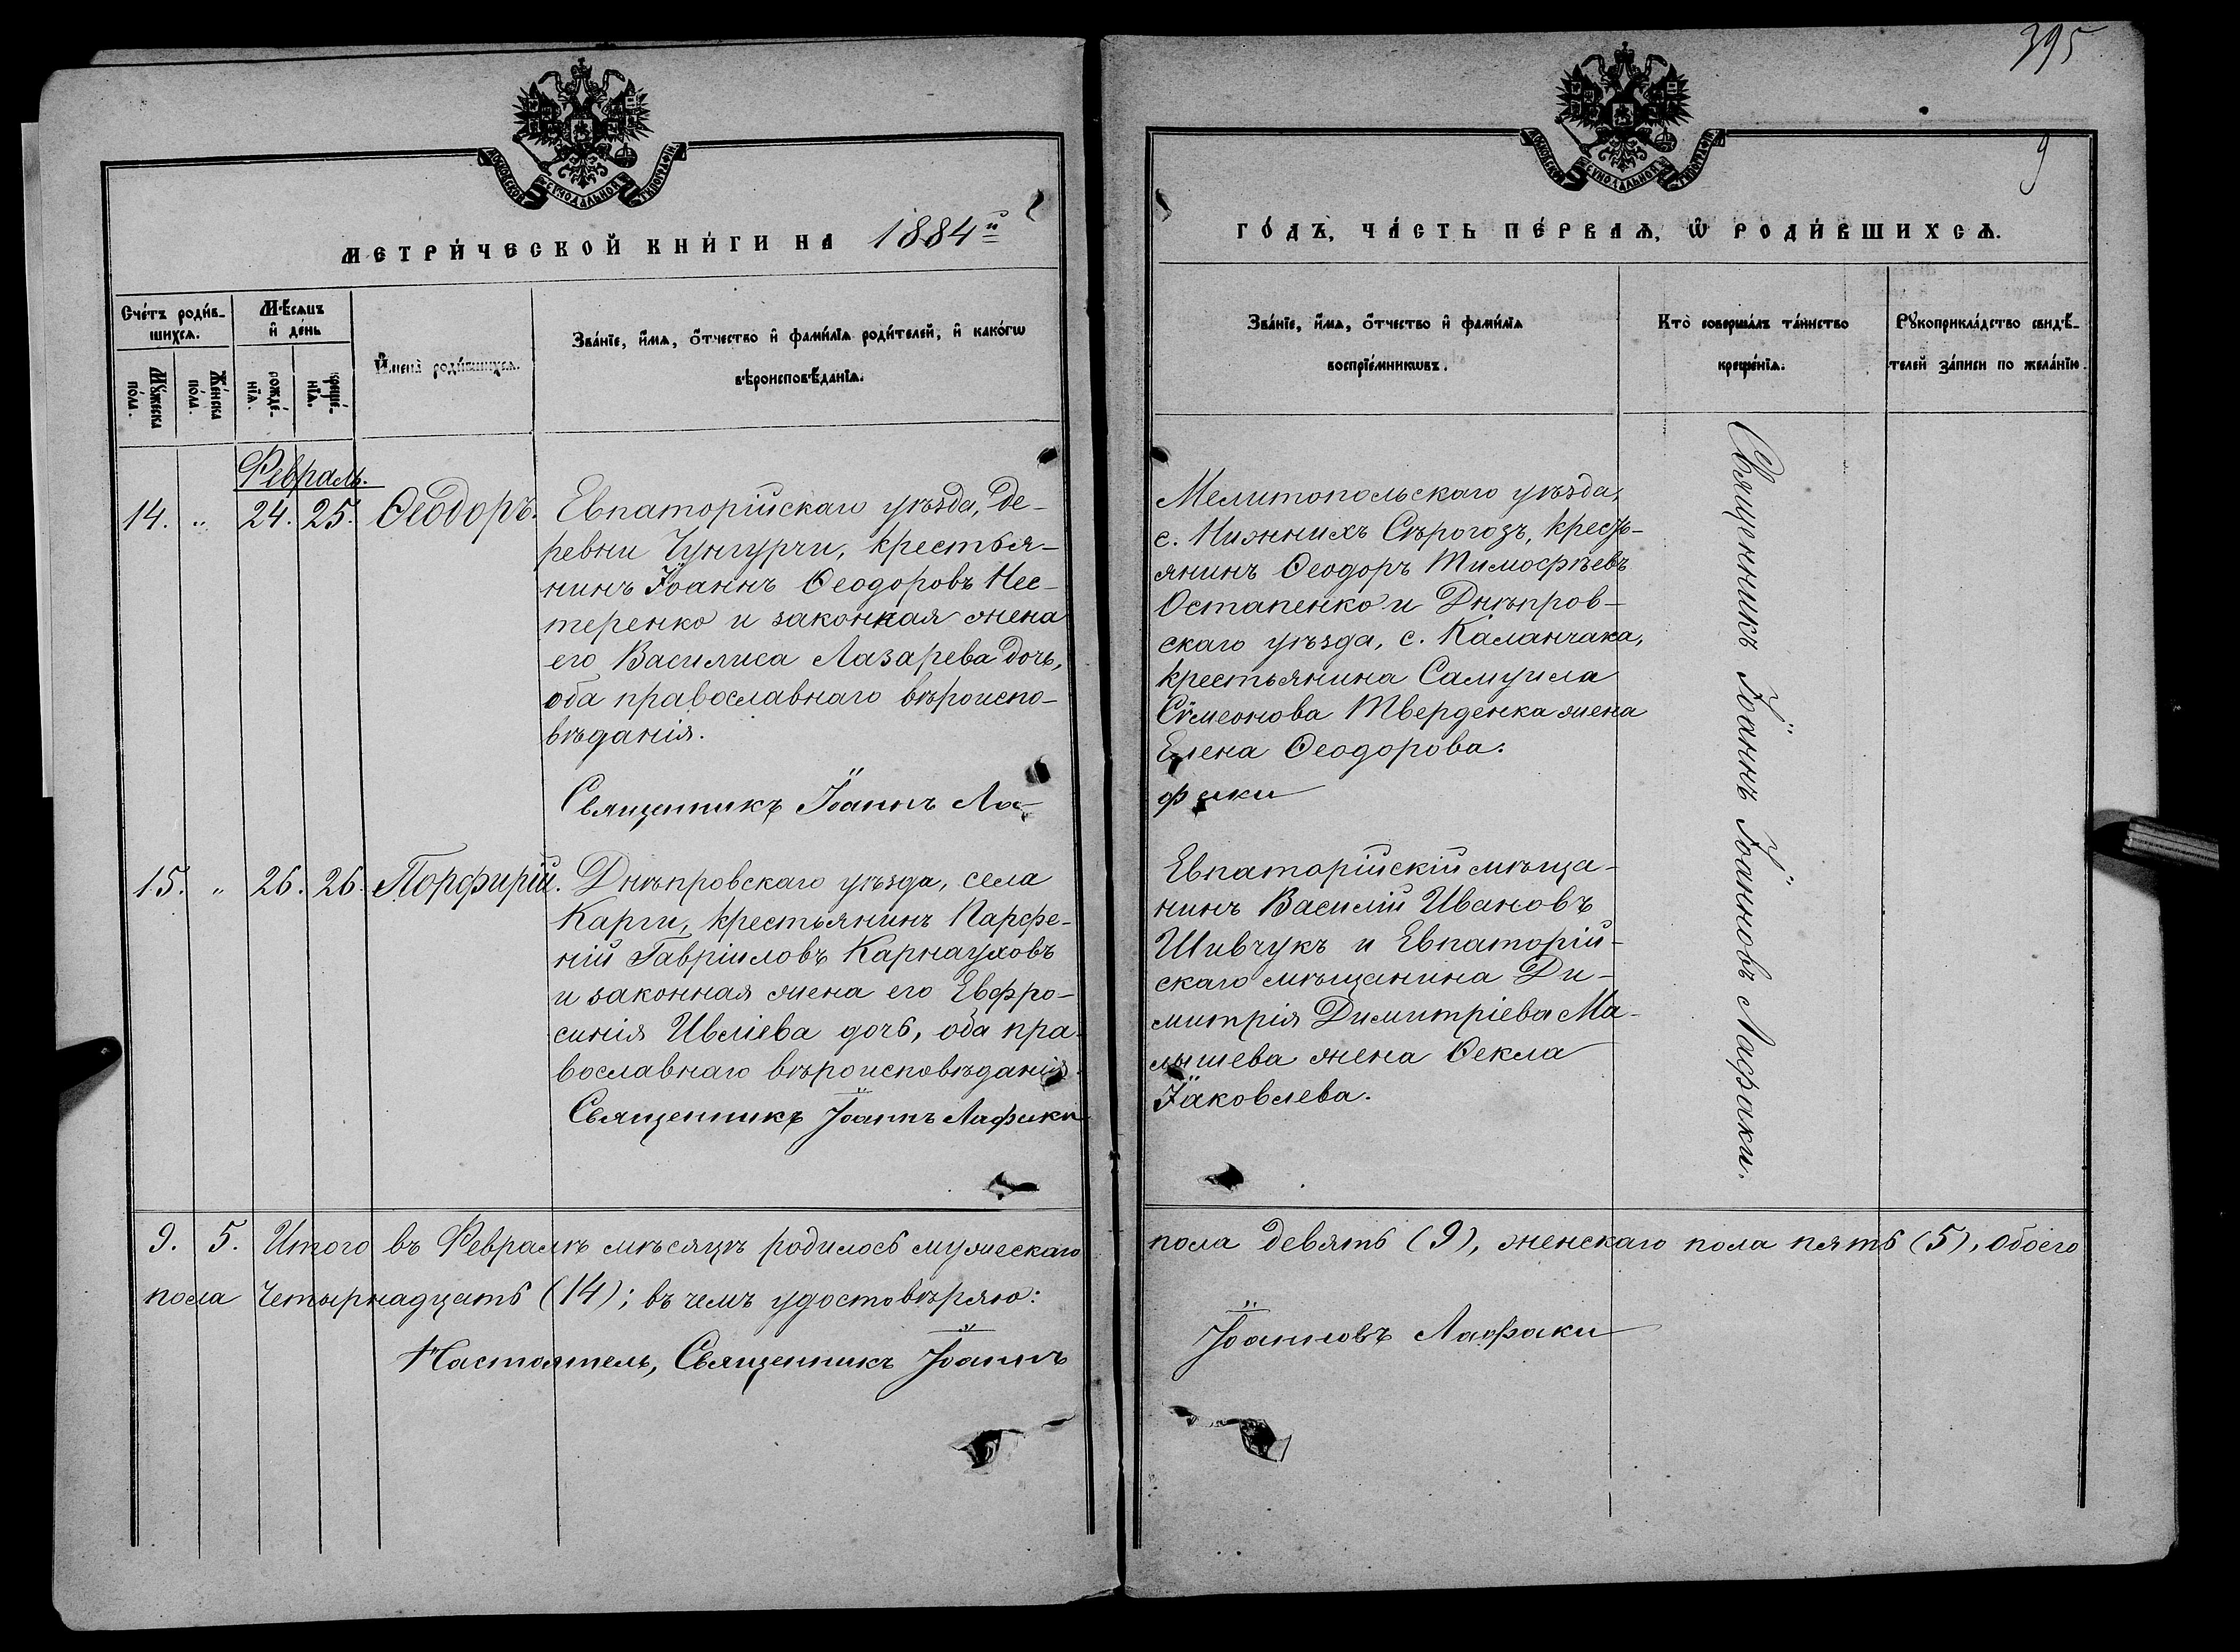 395
9
МОСКОВСКОЙ СѴНОДАЛЬНОЙ ТИПОГРАФІИ
МОСКОВСКОЙ СѴНОДАЛЬНОЙ ТИПОГРАФІИ
МЕТРИ́ЧЕСКОЙ КНИ́ГИ НА 1884й
ГО́ДЪ, ЧА́СТЬ ПЕ́РВАѦ, Ѡ҆ РОДИ́ВШИХСѦ.
Сче́тъ роди́в-
шихсѧ.
Мꙋ́жеска
по́ла.
Же́нска
по́ла.
Мѣ́сѧцъ
и҆ де́нь
рожде́-
нїѧ.
креще́-
нїѧ.
И҆мена̀ роди́вшихсѧ.
Зва́нїе, и҆́мѧ, ѻ҆́тчество и҆ фами́лїѧ роди́телей, и҆ како́гѡ
вѣроисповѣ́данїѧ.
Зва́нїе, и҆́мѧ, ѻ҆́тчество и҆ фами́лїѧ
воспрїе́мникѡвъ.
Кто̀ соверша́лъ та́инство
креще́нїѧ.
Рꙋкоприкла́дство свидѣ́-
телей за́писи по жела́нїю.
Февраль.
14. „ 24. 25. Ѳеодоръ. Евпаторійскаго уѣзда, де-
ревни Чунгурчи, крестья-
нинъ Іоаннъ Ѳеодоровъ Нес-
теренко и законная жена
его Василиса Лазарева дочь,
оба православнаго вѣроиспо-
вѣданія.
Священникъ Іоаннъ Ла-
Мелитопольскаго уѣзда,
с. Нижнихъ Сѣрогозъ, кресть-
янинъ Ѳеодоръ Тимоѳѣевъ
Остапенко и Днѣпров-
скаго уѣзда, с. Каланчака,
крестьянина Самуила
Сѵмеонова Тверденка жена
Елена Ѳеодорова.
факи
Священникъ Іоаннъ Іоанновъ Лафаки.
15. „ 26. 26. Порфирій. Днѣпровскаго уѣзда, села
Карги, крестьянинъ Парфе-
ній Гавріиловъ Карнауховъ
и законная жена его Евфро-
синія Ивліева дочь, оба пра-
вославнаго вѣроисповѣданія.
Священникъ Іоаннъ Лафаки
Евпаторійскій мѣща-
нинъ Василій Ивановъ
Шивчукъ и Евпаторій-
скаго мѣщанина Ди-
митрія Димитріева Ма-
лышева жена Ѳекла
Іаковлева.
9. 5. Итого въ Февралѣ мѣсяцѣ родилось мужескаго
пола девять (9), женскаго пола пять (5), обоего
пола четырнадцать (14); въ чемъ удостовѣряю:
Настоятель, Священникъ Іоаннъ
Іоанновъ Лафаки